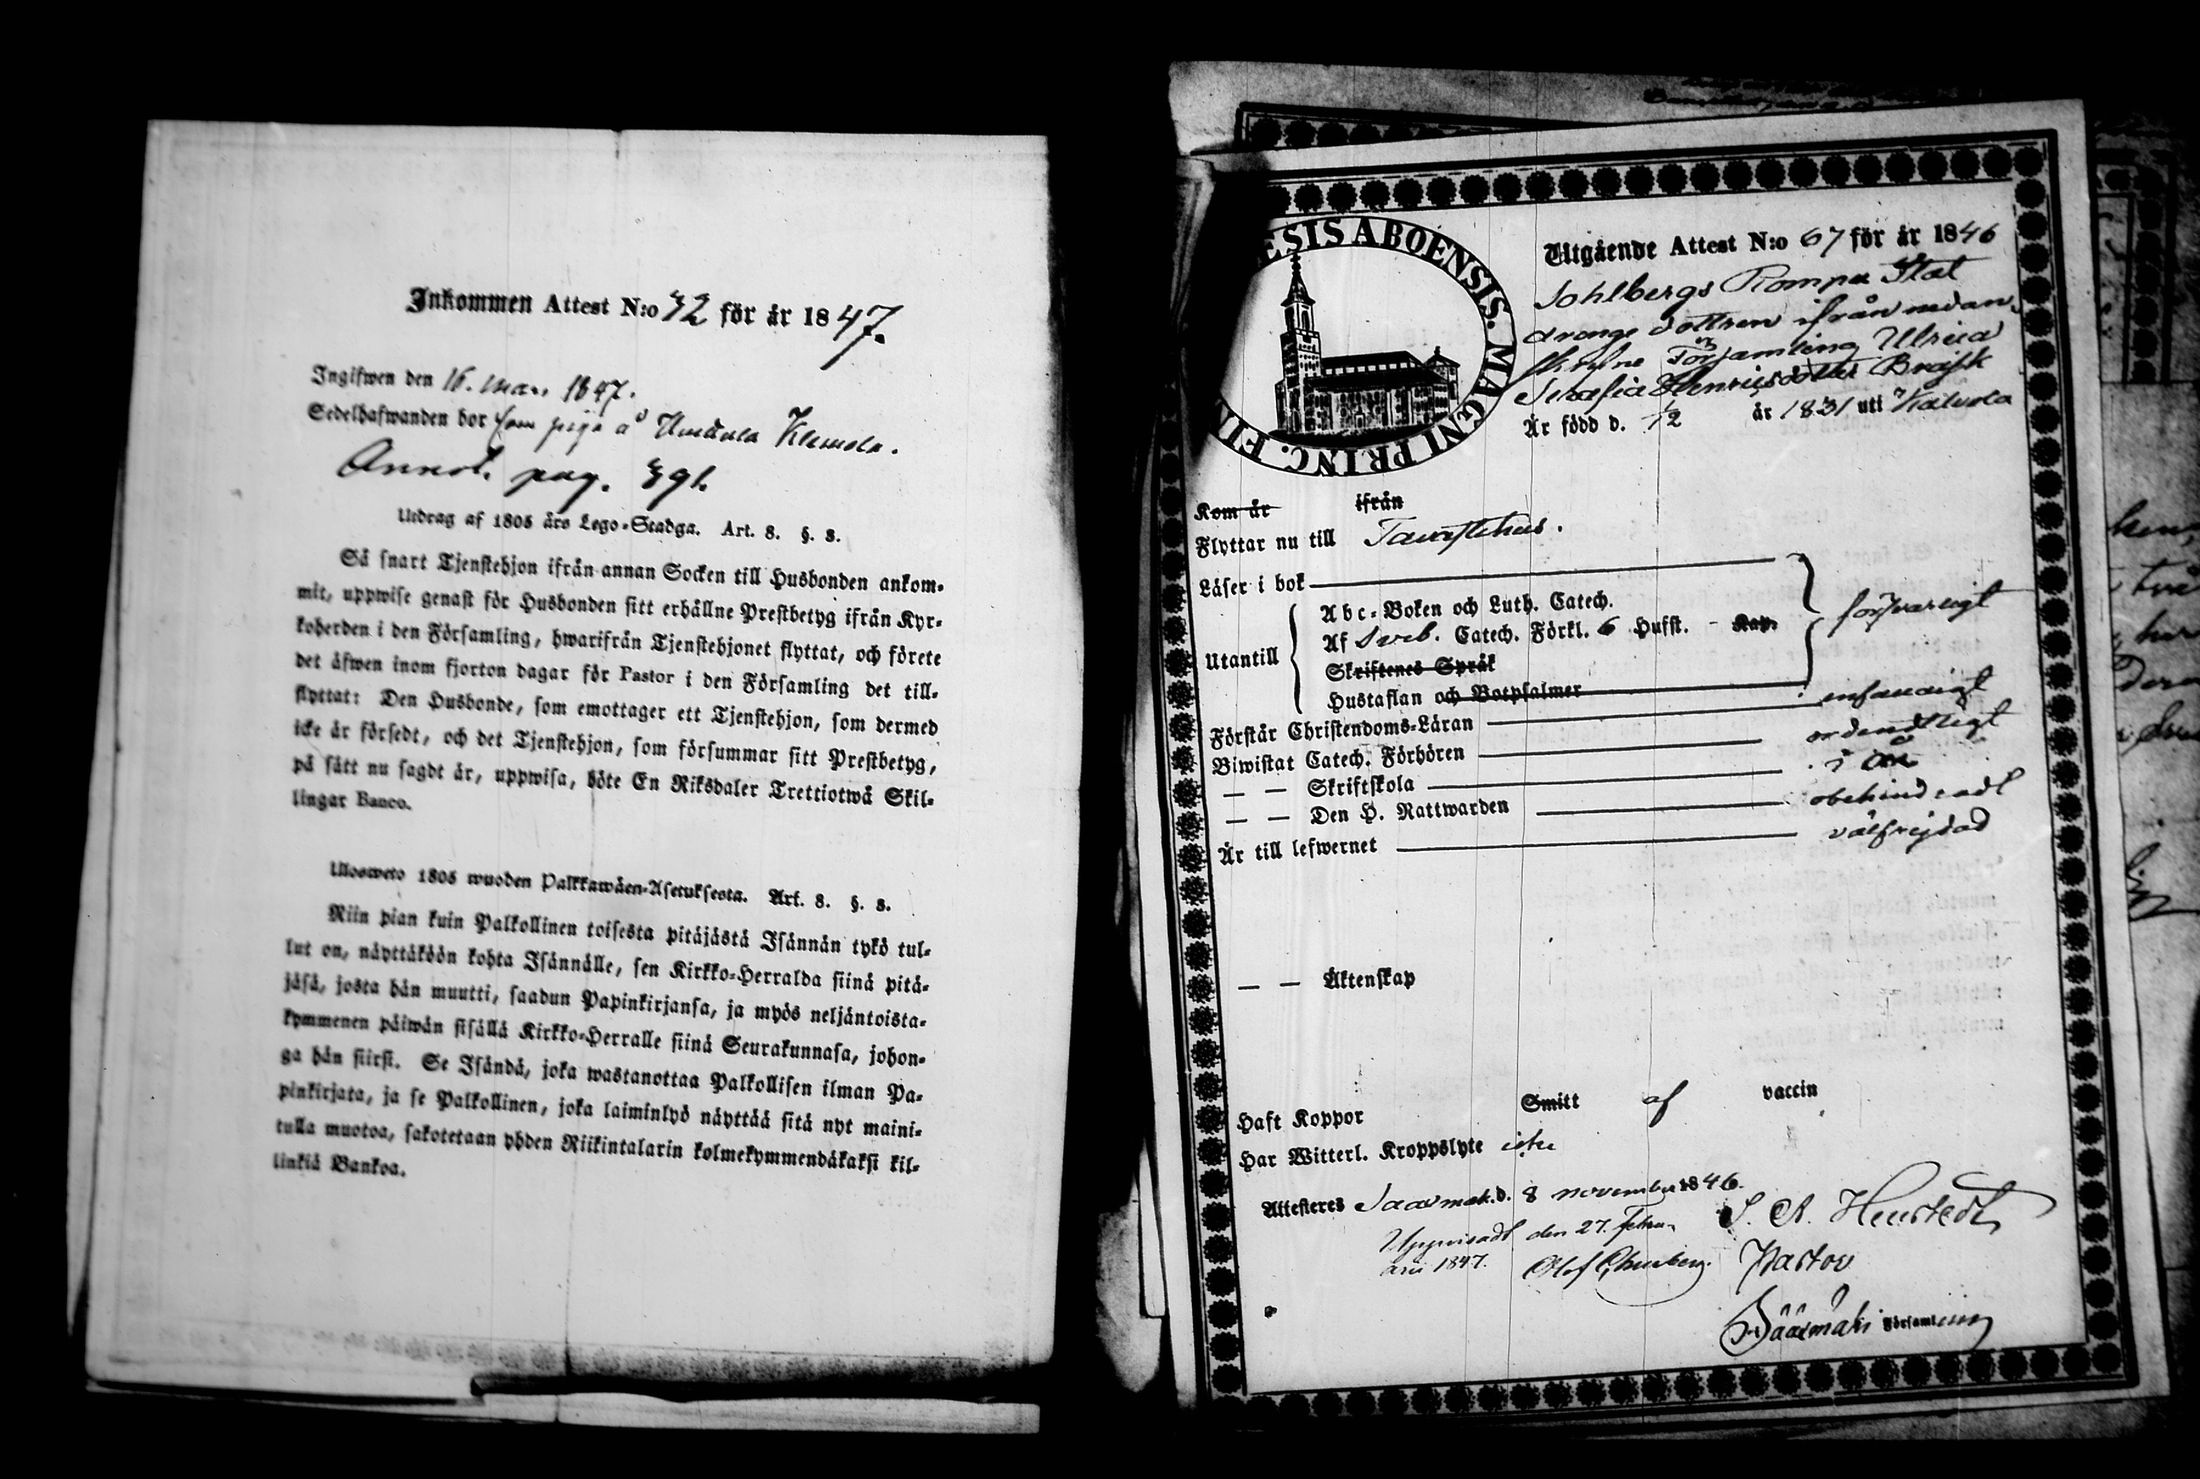 Inkommen Attest N:o 32 för år 1847.
Ingifwen den 16. Mars 1847.
Sedelhafwanden bor som piga å Klemola.
Annot. pag. 391.
Utdrag af 1805 års Lego-Stadga. Art. 8. §. 3.
Så snart Tjenstehjon ifrån annan Socken till Husbonden ankom-
mit, uppwise genast för Husbonden sitt erhållne Prestbetyg ifrån Kyr-
koherden i den Församling, hwarifrån Tjenstehjonet flyttat, och förete
det äfwen inom fjorton dagar för Pastor i den Församling det till-
flyttat: Den Husbonde, som emottager ett Tjenstehjon, som dermed
icke är försedt, och det Tjenstehjon, som försummar sitt Prestbetyg,
på sätt nu sagdt är, uppwisa, böte En Riksdaler Trettiotwå Skil-
lingar Banco.
Ulosweto 1805 wuoden Palkkawäen-Asetuksesta. Art. 8. §. 3.
Niin pian kuin Palkollinen toisesta pitäjästä Isännän tykö tul-
lut on, näyttäköön kohta Isännälle, sen Kirkko-Herralda siinä pitä-
jäsä, josta hän muutti, saadun Papinkirjansa, ja myös neljäntoista-
kymmenen päiwän sisällä Kirkko-Herralle siinä Seurakunnasa, johon-
ga hän siirsi. Se Isändä, joka wastanottaa Palkollisen ilman Pa-
pinkirjata, ja se Palkollinen, joka laiminlyö näyttää sitä nyt maini-
tulla muotoa, sakotetaan yhden Riikintalarin kolmekymmendäkaksi kil-
linkiä Bankoa.
ESIS ABOENSIS. MAGNI PRINC. FIN
Utgående Attest N:o 67 för år 1846
Sohlbergs Rompa Stat
drange dottren ifrån nedan
skrefne Församling Ulrica
Serafia Henricsdotter Bräisk
Är född d. 1/2 år 1831 uti Kalvola
Kom år ifrån
Flyttar nu till Tavastehus.
Läser i bok
Utantill
Abc-Boken och Luth. Catech.
Af Sveb. Catech. Förkl. 6 Hufst. - Kap. försvarligt
Skriftenes Språk
Hustaflan och Botpsalmer
Förstår Christendoms-Läran enfaldigt
Biwistat Catech. Förhören ordentligt
— — Skriftskola i år
— — Den H. Nattwarden obehindradt
Är till lefwernet välfrejdad
— — Äktenskap
Haft Koppor Smitt af vaccin
Har Witterl. Kroppslyte icke
Attesteres Saarmäk. d. 8 november 1846.
Uppvisadt den 27. Febru-
arii 1847. Olof
Pastor
Sääxmäki Församling